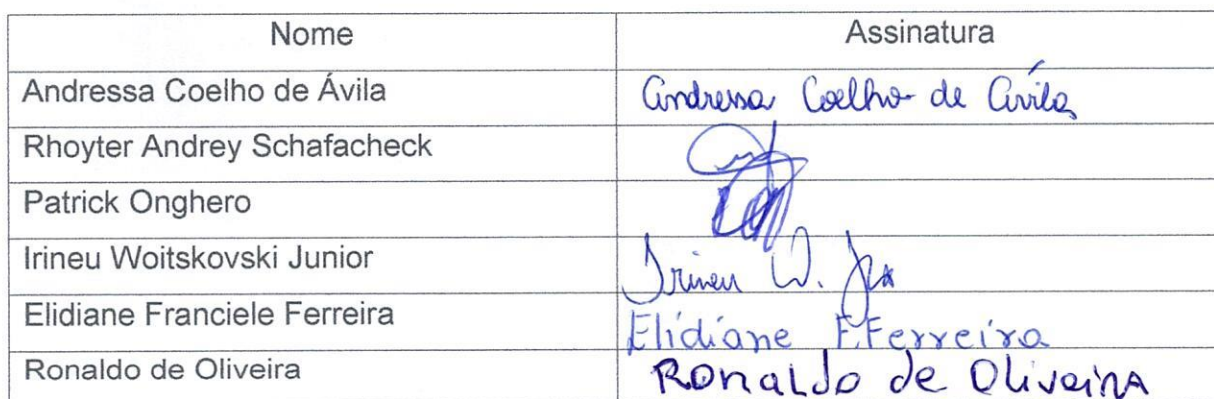 Nome Assinatura
Andressa Coelho de Ávila Andressa Coelho de Ávila
Rhoyter Andrey Schafacheck
Patrick Onghero
Irineu Woitskovski Junior Irineu W. Jr
Elidiane Franciele Ferreira Elidiane F. Ferreira
Ronaldo de Oliveira Ronaldo de Oliveira